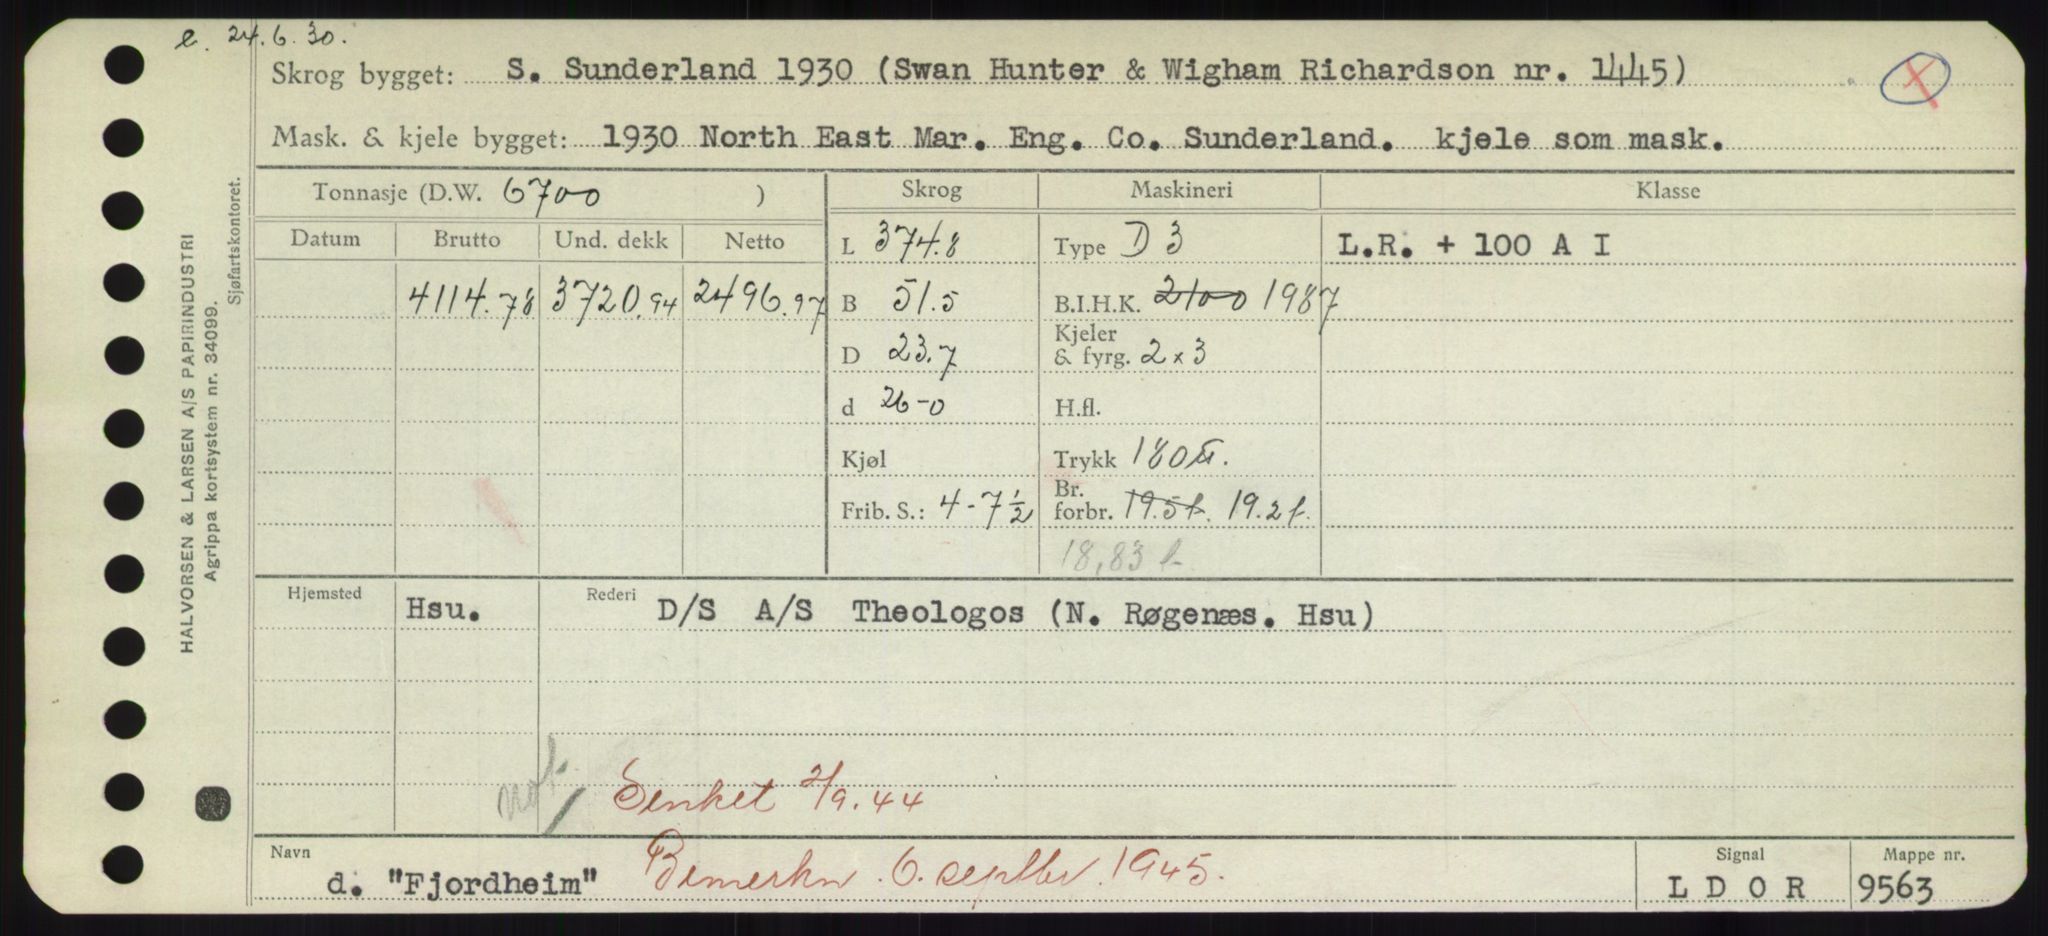 e. 24.6.30.
Skrog bygget: S. Sunderland 1930 (Swan Hunter & Wigham Richardson nr. 1445)
X
Mask. & kjele bygget: 1930 North East Mar. Eng. Co. Sunderland. kjele som mask.
Tonnasje (D.W. 6700 )
Skrog
Maskineri
Klasse
Datum Brutto Und. dekk Netto
4114.78 3720.94 2496.97
L 374.8
B 51.5
D 23.7
d 26-0
Kjøl
Frib. S.: 4-7 1/2
Type D 3
B.I.H.K. 2100 1987
Kjeler
& fyrg. 2 x 3
H.fl.
Trykk 180
Br.
forbr. 19.5 t. 19.2 t.
18,83 t
L.R. + 100 A I
Hjemsted Hsu. Rederi D/S A/S Theologos (N. Røgenæs. Hsu)
not.
Senket 2/9.44
Navn d. "Fjordheim"
Bemerkn. 6. septbr. 1945.
Signal L D O R
Mappe nr. 9563
HALVORSEN & LARSEN A/S PAPIRINDUSTRI
Agrippa kortsystem nr. 34099.
Sjøfartskontoret.